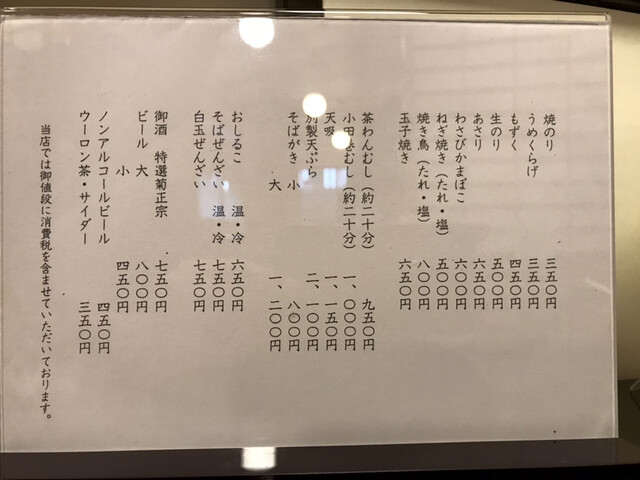 焼のり 三五〇円
うめくらげ 三五〇円
もずく 四五〇円
生のり 五〇〇円
あさり 六五〇円
わさびかまぼこ 六〇〇円
ねぎ焼き（たれ・塩） 五〇〇円
焼き鳥（たれ・塩） 八〇〇円
玉子焼き 六五〇円
茶わんむし（約二十分） 九五〇円
小田巻むし（約二十分） 一、〇〇〇円
天吸 一、一五〇円
別製天ぷら 二、一〇〇円
そばがき 小 八〇〇円
大 一、二〇〇円
おしるこ 温・冷 六五〇円
そばぜんざい 温・冷 七五〇円
白玉ぜんざい 七五〇円
御酒 特選菊正宗 七五〇円
ビール 大 八〇〇円
小 四五〇円
ノンアルコールビール 四五〇円
ウーロン茶・サイダー 三五〇円
当店では御値段に消費税を含ませていただいております。